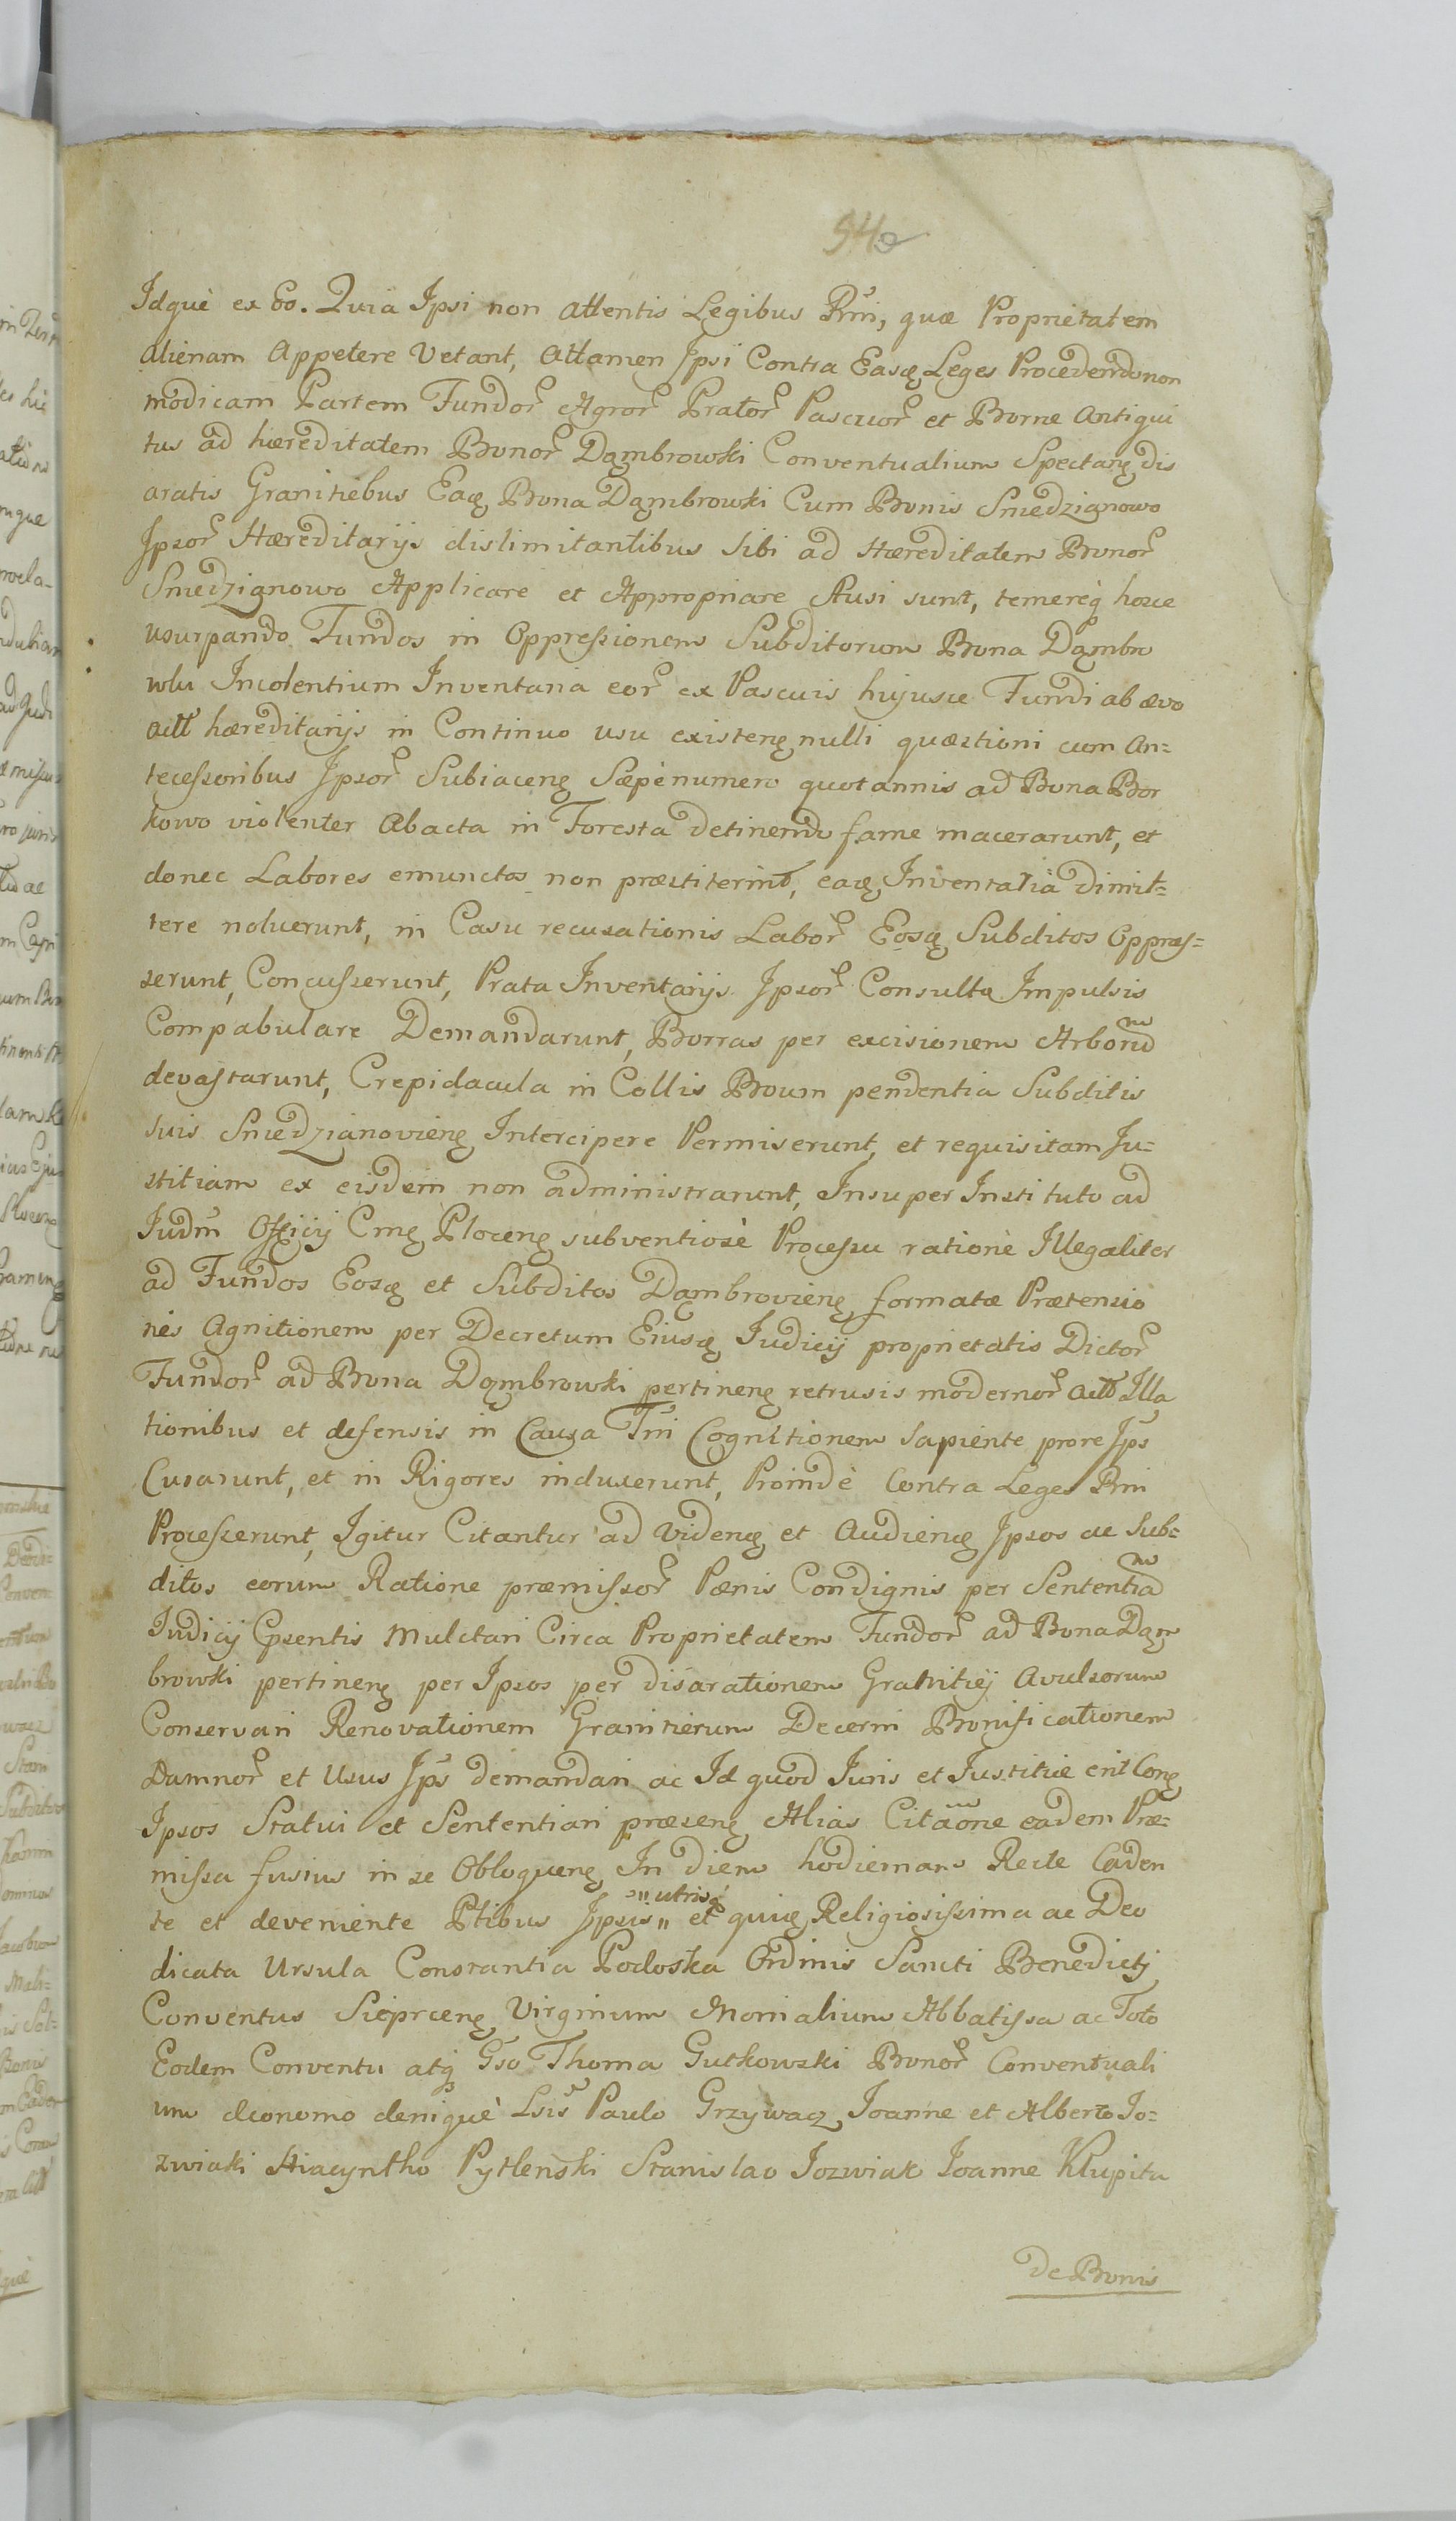 54
Idquè ex Eo. Quia Ipsi non attentis Legibus Rñi, quæ Proprietatem
alienam Appetere Vetant, attamen Ipsi Contra Easq Leges Procedendo non
modicam Partem Fundor Agror Prator Pascuor et Borræ Antiqui
tus ad hæreditatem Bonor Dąmbrowski Conventualium Spectanę dis
aratis Granitiebus Eaq Bona Dąmbrowski Cum Bonis Smedzianowo
Ipsor Hæreditarijs dislimitantibus sibi ad Hæreditatem Bonor
Smedzianowo Applicare et Appropriare Ausi sunt, temereq hosce
usurpando Fundos in Oppressionem Subditorum Bona Dąmbro
wski Incolentium Inventaria eor ex Pascuis hujusce Fundi ab ævo
actt hæreditarijs in Continuo usu existenę nulli quæstioni cum An=
tecessoribus Ipsor Subiacenę Sæpènumero quotannis ad Bona Bor
kowo violenter Abacta in Foresta detinendo fame macerarunt, et
donec Labores emunctos non præstiterint, eaq Inventaria dimit=
tere noluerunt, in Casu recusationis Labor Eosq Subditos Oppres=
serunt, Concusserunt, Prata Inventarijs Ipsor Consulto Impulsis
Compabulare Demandarunt, Borras per excisionem Arborum
devastarunt, Crepidacula in Collis Boum pendentia Subditis
suis Smedzianovienę Intercipere Permiserunt, et requisitam Ju=
stitiam ex eisdem non administrarunt, Insuper Instituto ad
Iudm̃ Officij Cmę Plocenę subventiosè Processu rationè Illegaliter
ad Fundos Eosq et Subditos Dąmbrovienę formatæ Prætensio
nes Agnitionem per Decretum Eiusq Iudicij proprietatis Dictor
Fundor ad Bona Dąmbrowski pertinenę retrusis modernor actt Illa
tionibus et defensis in Causa Tñi Cognitionem sapiente prore Ips
Curarunt, et in Rigores induxerunt, Proindè Contra Leges Rñi
Processerunt, Igitur Citantur ad Videnę et Audienę Ipsos ac Sub=
ditos eorum Ratione præmissor Pænis Condignis per Sententiam
Iudicij Cpsentis Mulctari Circa Proprietatem Fundor ad Bona Dąm
browski pertinenę per Ipsos per disarationem Granitiej Avulsorum
Conservari Renovationem Granitierum Decerni Bonificationem
Damnor et Usus Ips demandari ac Id quod Iuris et Iustitiæ erit Conę
Ipsos Statui et Sententiari præsenę Alias Citãone eadem Præ=
missa fusius in se Obloquenę In diem hodiernam Recte Caden
te et deveniente Ptibus Ipsis " utrisq " et quiq Religiosissima ac Deo
dicata Ursula Constantia Podoska Ordinis Sancti Benedicti
Conventus Sieprcenę Virginum Monialium Abbatissa ac Toto
Eodem Conventu atq Gso Thoma Gutkowski Bonor Conventuali
um Œconomo deniquè Lsis Paulo Grzywacz Ioanne et Alberto Jo=
zwiaki Hiacyntho Pytlenski Stanislao Jozwiak Ioanne Klupitu
de Bonis